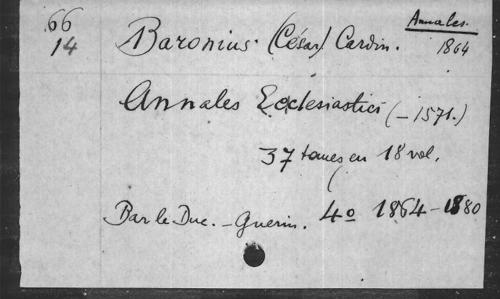 66
14
Annales.
1864
Baronius (César) Cardin.
Annales Ecclesiastici (-1571.)
37 tomes en 18 vol.
Bar le Duc. - Guerin. 4º 1864-1880